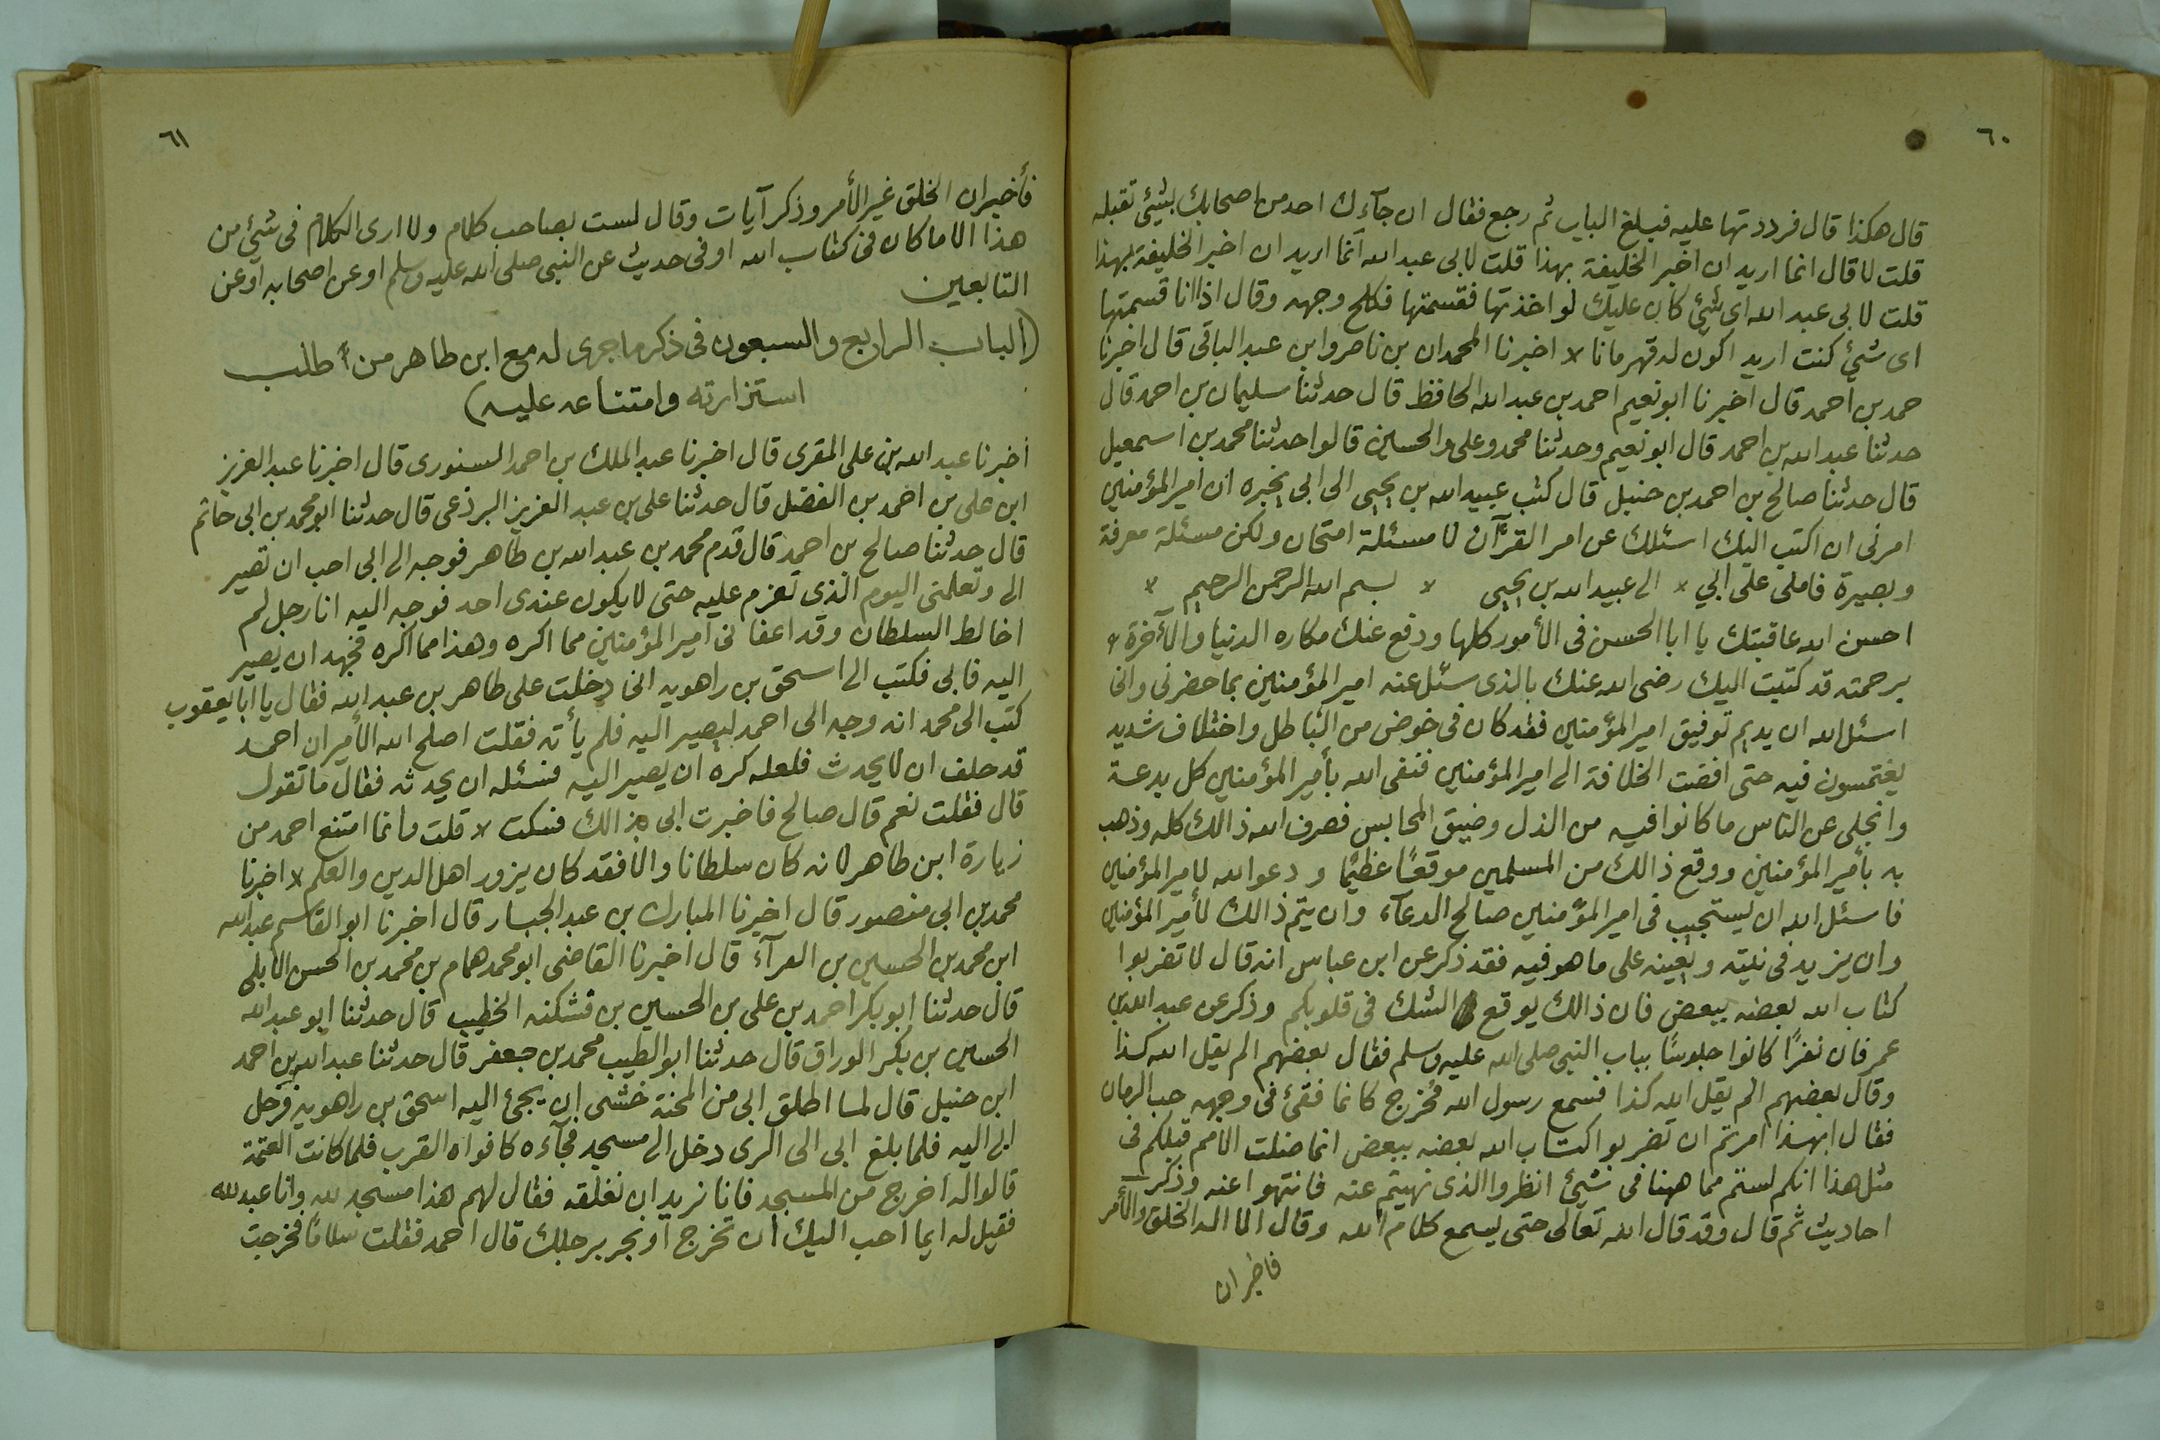 ٦٠
قال هكذا قال فرددتها عليه فبلغ الباب ثم رجع فقال ان جآءك احد من اصحابك بشيئ تقبله
قلت لا قال انما اريد ان اخبر الخليفة بهذا قلت لابى عبد الله انما اريد ان اخبر الخليفة بهذا
قلت لابى عبد الله اى شيئ كان عليك لو اخذتها فقسمتها فكلح وجهه وقال اذا انا قسمتها
اى شيئ كنت اريد اكون له قهرمانا × اخبرنا المحمدان بن ناصر وابن عبد الباقى قال اخبرنا
حمد بن احمد قال اخبرنا ابو نعيم احمد بن عبد الله الحافظ قال حدثنا سليمان بن احمد قال
حدثنا عبد الله بن احمد قال ابو نعيم وحدثنا محمد وعلى والحسين قالوا حدثنا محمد بن اسمعيل
قال حدثنا صالح بن احمد بن حنبل قال كتب عبيد الله بن يحيى الى ابى يخبره ان امير المؤمنين
امرنى ان اكتب اليك اسئلك عن امر القرآن لا مسئلة امتحان ولكن مسئلة معرفة
وبصيرة فاملى على ابي × الى عبيد الله بن يحيى × بسم الله الرحمن الرحيم ×
احسن الله عاقبتك يا ابا الحسن فى الأمور كلها ودفع عنك مكاره الدنيا والآخرة ×
برحمته قد كتبت اليك رضى الله عنك بالذى سئل عنه امير المؤمنين بما حضرنى وانى
اسئل الله ان يديم توفيق امير المؤمنين فقد كان فى خوض من الباطل واختلاف شديد
يغتمسون فيه حتى افضت الخلافة الى امير المؤمنين فنفى الله بأمير المؤمنين كل بدعة
وانجلى عن الناس ما كانوا فيه من الذل وضيق المحابس فصرف الله ذالك كله وذهب
به بأمير المؤمنين ووقع ذالك من المسلمين موقعًا عظيمًا ودعوا الله لامير المؤمنين
فاسئل الله ان يستجيب فى امير المؤمنين صالح الدعآء وان يتم ذالك لأمير المؤمنين
وان يزيد فى نيته ويعينه على ما هو فيه فقد ذكر عن ابن عباس انه قال لا تضربوا
كتاب الله بعضه ببعض فان ذالك يوقع الشك فى قلوبكم وذكر عن عبد الله بن
عمر فان نفرًا كانوا جلوسًا بباب النبي صلى الله عليه وسلم فقال بعضهم الم يقل الله كذا
وقال بعضهم الم يقل الله كذا فسمع رسول الله فخرج كانما فقئ فى وجهه حب الرمان
فقال ابهذا امرتم ان تضربوا كتاب الله بعضه ببعض انما ضلت الامم قبلكم فى
مثل هذا انكم لستم مما ههنا فى شيئ انظروا الذى نهيتم عنه فانتهوا عنه وذكر
احاديث ثم قال وقد قال الله تعالى حتى يسمع كلام الله وقال الا له الخلق والأمر
فاخبر ان
٦١
فأخبر ان الخلق غير الأمر وذكر آيات وقال لست بصاحب كلام ولا ارى الكلام فى شيئ من
هذا الا ما كان فى كتاب الله او فى حديث عن النبى صلى الله عليه وسلم او عن اصحابه او عن
التابعين
(الباب الرابع والسبعون فى ذكر ما جرى له مع ابن طاهر من طلب
استزارته وامتناعه عليه)
أخبرنا عبد الله بن على المقرى قال اخبرنا عبد الملك بن احمد السنورى قال اخبرنا عبد العزيز
ابن على بن احمد بن الفضل قال حدثنا على بن عبد العزيز البرذعى قال حدثنا ابو محمد بن ابى حاتم
قال حدثنا صالح بن احمد قال قدم محمد بن عبد الله بن طاهر فوجه الى ابى احب ان تصير
الى وتعلمنى اليوم الذى تعزم عليه حتى لا يكون عندى احد فوجه اليه انا رجل لم
اخالط السلطان وقد اعفانى امير المؤمنين مما اكره وهذا مما اكره فجهد ان يصير
اليه فابى فكتب الى اسحق بن راهويه انى دخلت على طاهر بن عبد الله فقال يا ابا يعقوب
كتب الى محمد انه وجه الى احمد ليصير اليه فلم يأته فقلت اصلح الله الأمير ان احمد
قد حلف ان لا يحدث فلعله كره ان يصير اليه فنسئله ان يحدثه فقال ما تقول
قال فقلت نعم قال صالح فاخبرت ابى بذالك فسكت × قلت وانما امتنع احمد من
زيارة ابن طاهر لانه كان سلطانا والا فقد كان يزور اهل الدين والعلم × اخبرنا
محمد بن ابى منصور قال اخبرنا المبارك بن عبد الجبار قال اخبرنا ابو القاسم عبد الله
ابن محمد بن الحسين بن الفرآء قال اخبرنا القاضى ابو محمد همام بن محمد بن الحسن الأبلى
قال حدثنا ابو بكر احمد بن على بن الحسين بن قشكنه الخطيب قال حدثنا ابو عبد الله
الحسين بن بكر الوراق قال حدثنا ابو الطيب محمد بن جعفر قال حدثنا عبد الله بن احمد
ابن حنبل قال لما اطلق ابى من المحنة خشى ان يجئ اليه اسحق بن راهويه فرحل
ابى اليه فلما بلغ ابى الى الرى دخل الى مسجد فجآءه كافواه القرب فلما كانت العتمة
قالوا له اخرج من المسجد فانا نريد ان نغلقه فقال لهم هذا مسجد لله وانا عبد لله
فقيل له ايما احب اليك أن تخرج او نجر برجلك قال احمد فقلت سلامًا فخرجت